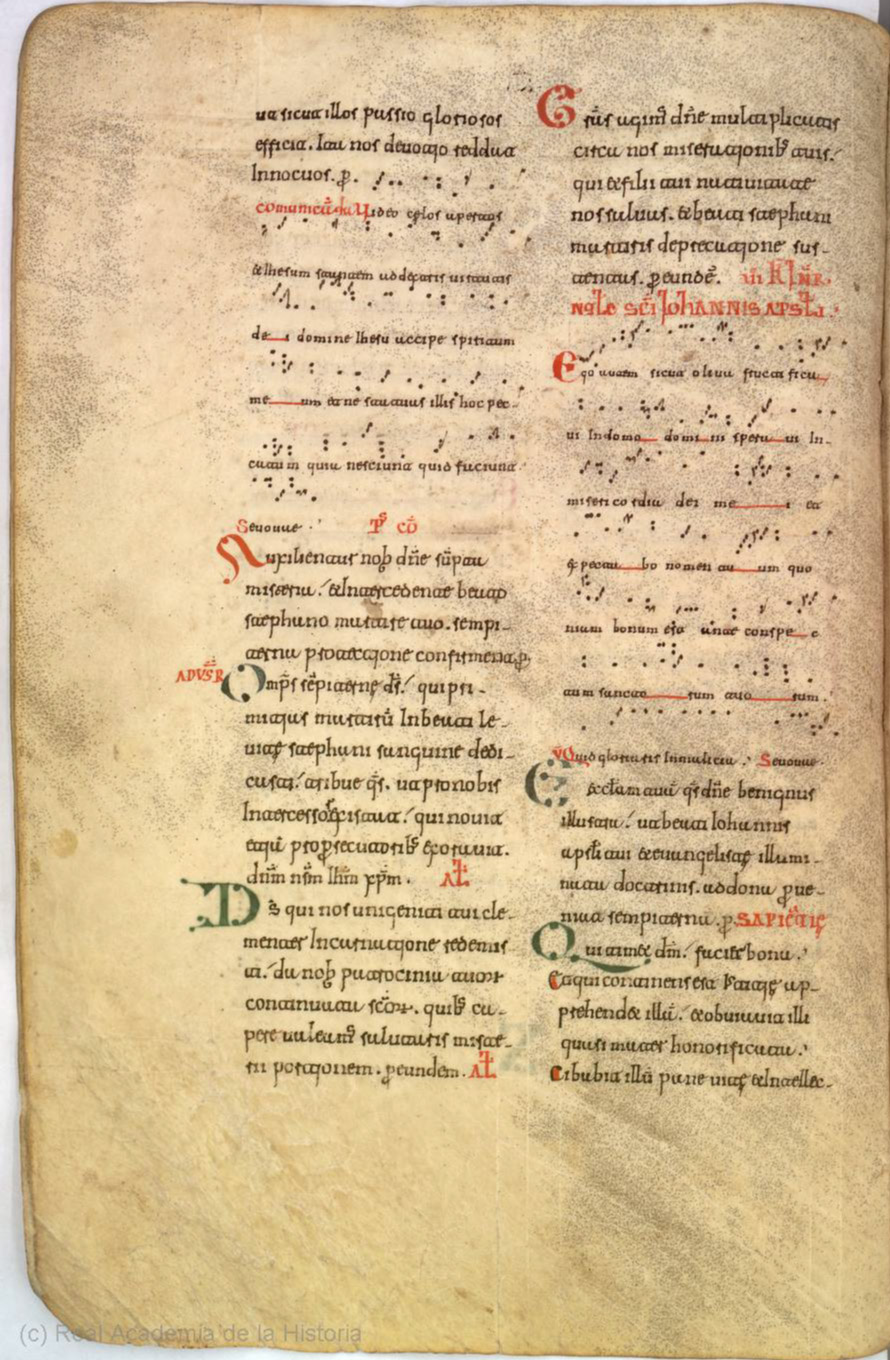 ut sicut illos passio gloriosos
efficit. Ita nos deuotio reddat
Innocuos. p.
comunicā. Uideo celos apertos
& Ihesum stantem ad dextris uirtutis
de i domine Ihesu accipe spiritum
me um et ne statuas illis hoc pec-
catum quia nesciunt quid faciunt
Seuouae
Auxilientur nob dn̄e sūpta
misteria. & Intercedente beato
stephano martire tuo. sempi-
terna protectione confirment. p
ADUSR Omp̄s sēpiterne ds̄. qui pri-
mitius martirū In beati le-
uite stephani sanguine dedi-
casti. tribue q̄s. ut pro nobis
Intercessor existat. qui nouit
etiā pro persecutorib; exorauit.
dn̄m nsm̄ Ihm̄ xp̄m. AL
Ds̄ qui nos unigeniti tui cle-
menter Incarnatione redemis
ti. da nob patrocinia tuor
continuata scor. quib; ca-
pere ualeam salutaris miste-
rii portionem. p eundem. AL
Gr̄is ugim dn̄e multiplicatis
circa nos miserationib; tuis.
qui & filii tui natiuitate
nos saluas. & beati stephani
martiris deprecatione sus-
tentas. p eundē.
NAtLe SCI IohANNIS APSLI
Ego autem sicut oliua fructifica
ui In domo domi ni spera ui In
misericordia dei me i et
expecta bo nomen tu um quo
niam bonum est ante conspe c
tum sancto rum tuo rum
Quid gloriaris Inmalicia. Seuouae
Ecclam tuā q̄s dn̄e benignus
illustra. ut beati Iohannis
apsłi tui & euangeliste illumi-
nata doctrinis. ad dona p ue-
niat sempiterna. p. SAPIĒTIE
Qui timet dm̄. faciet bona.
Et qui continens est Iustitie ap-
prehend& illā. & obuiauit illi
quasi mater honorificata.
Cibabit illū pane uite & Intellec-
(c) Real Academia de la Historia